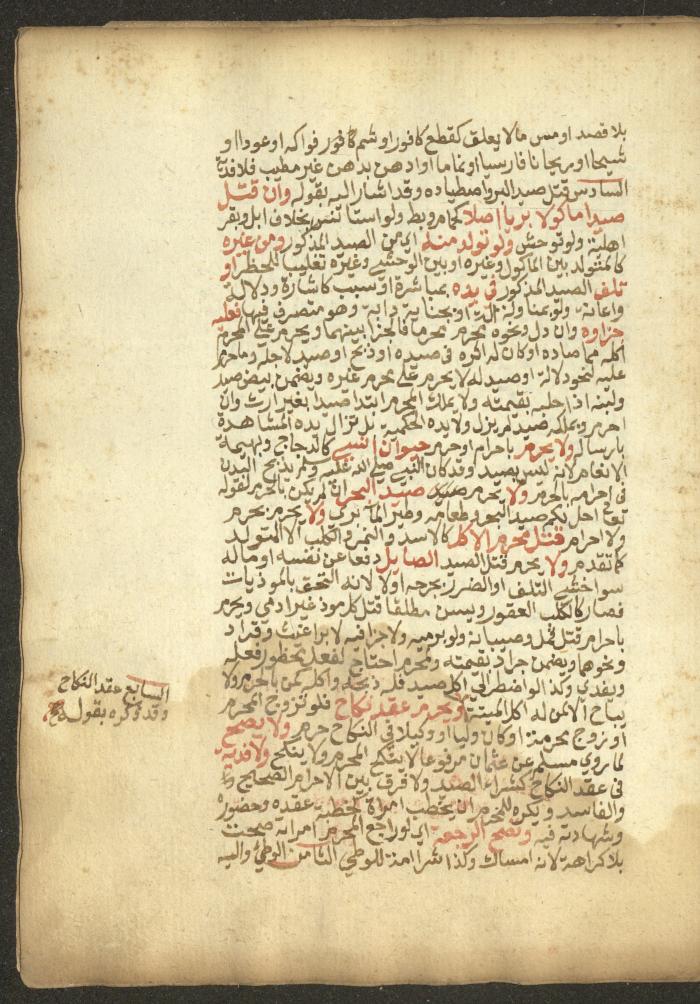 بلا قصد او مس ما لا يعلق كقطع كافور او شم كافور او فواكه او عودا او
شيحا او ريحانا فارسيا او نماما او ادهن بدهن غير مطيب فلا فدية
السادس قتل صيد البر واصطياده وقد اشار اليه بقوله وان قتل
صيدا ماكولا بريا اصلا كحمام وبط ولو استانس بخلاف ابل وبقر
اهلية ولو توحش ولو تولد منه اي من الصيد المذكور ومن غيره
كالمتولد بين الماكول وغيره او بين الوحشي وغيره تغليبا للحظر او
تلف الصيد المذكور في يده بمباشرة او سبب كاشارة ودلالة
واعانة ولو بمناولة الة او بجناية دابة وهو متصرف فيها فعليه
جزاوه وان دل ونحوه محرم محرما فالجزا بينهما ويحرم على المحرم
اكله مما صاده او كان له اثر في صيده او ذبح او صيد لاجله وما حرم
عليه لنحو دلالة او صيد له لا يحرم على محرم غيره ويضمن بيض صيد
ولبنه اذا حلبه بقيمته ولا يملك المحرم ابتدا صيدا بغير ارث وان
احرم وبملكه صيد لم يزل ولا يده الحكمية بل تزال يده المشاهدة
بارساله ولا يحرم باحرام او حرم حيوان انسي كالدجاج وبهيمة
الانعام لانه ليس بصيد وقد كان النبي صلى الله عليه وسلم يذبح البدن
في احرامه بالحرم ولا يحرم صيد صيد البحر ان لم يكن بالحرم لقوله
تعالى احل لكم صيد البحر وطعامه وطير الماء بري ولا يحرم بحرم
ولا احرام قتل محرم الاكل كالاسد والنمر والكلب الا المتولد
كما تقدم ولا يحرم قتل الصيد الصايل دفعا عن نفسه او ماله
سوا خشي التلف او الضرر بجرحه اولا لانه التحق بالموذيات
فصار كالكلب العقور ويسن مطلقا قتل كل موذ غير ادمي ويحرم
باحرام قتل قمل وصيبانه ولو برميه ولا جزا فيه لا براغيث وقراد
ونحوهما ويضمن جراد بقيمته ولمحرم احتاج لفعل محظور فعله
ويفدي وكذا لو اضطر الى اكل صيد فله ذبحه واكله كمن بالحرم ولا
يباح الا لمن له اكل الميتة ويحرم عقد نكاح فلو تزوج المحرم
او زوج محرمة او كان وليا او وكيلا في النكاح حرم ولا يصح
لما روى مسلم عن عثمان مرفوعا لا ينكح المحرم ولا ينكح ولا فدية
في عقد النكاح كشراء الصيد ولا فرق بين الاحرام الصحيح
والفاسد ويكره للمحرم ان يخطب امراة كخطبة عقده وحضوره
وشهادته فيه وتصح الرجعة اي لو راجع المحرم امراته صحت
بلا كراهة لانه امساك وكذا شرا امة للوطي الثامن الوطي واليه
السابع عقد النكاح
وقد ذكره بقوله صح